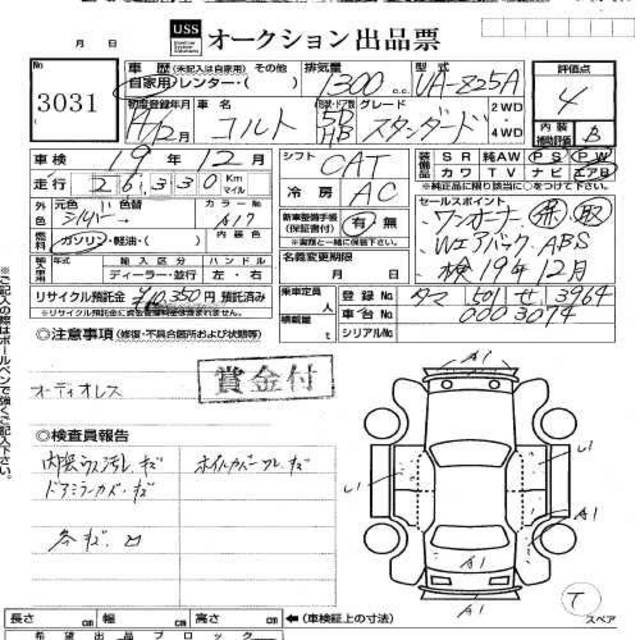 月 日
USS オークション出品票
No 3031
車歴(未記入は自家用) その他
自家用 レンター・( )
排気量 1300 c.c.
型式 UA-Z25A
評価点 4
初度登録年月 H /12月
車名 コルト
5D HB
グレード スタンダード
2WD・4WD
内装補助評価 B
車検 19年12月
シフト CAT
装備品 SR 純AW PS PW
カワ TV ナビ エアB
※純正品に限り該当に○をつけて下さい。
走行 26,330 Km マイル
冷房 AC
セールスポイント
・ワンオーナー 保 取
・Wエアバック、ABS
・検19年12月
外色 元色 色替 カラーNo
シルバー → A17
新車整備手帳(保証書付) 有・無
※実際と一緒に保管下さい。
燃料 ガソリン・軽油・( ) 内装色
名義変更期限 月 日
輸入車用 年式 輸入区分 ハンドル
ディーラー・並行 左・右
リサイクル預託金 ¥10,350円 預託済み
乗車定員 人
積載量 t
登録No タマ 501 せ 3964
車台No 0003074
シリアルNo
◎注意事項(修復・不具合箇所および状態等)
オーディオレス
賞金付
◎検査員報告
内張ウス汚レ、キズ
ホイルカバーワレ、キズ
ドアミラーカバーキズ
各キズ、凹
A1
U1
U1
A1
A1
A1
T
スペア
長さ cm 幅 cm 高さ cm ←(車検証上の寸法)
希望出品ブロック
※ご記入の際はボールペンで強くご記入下さい。